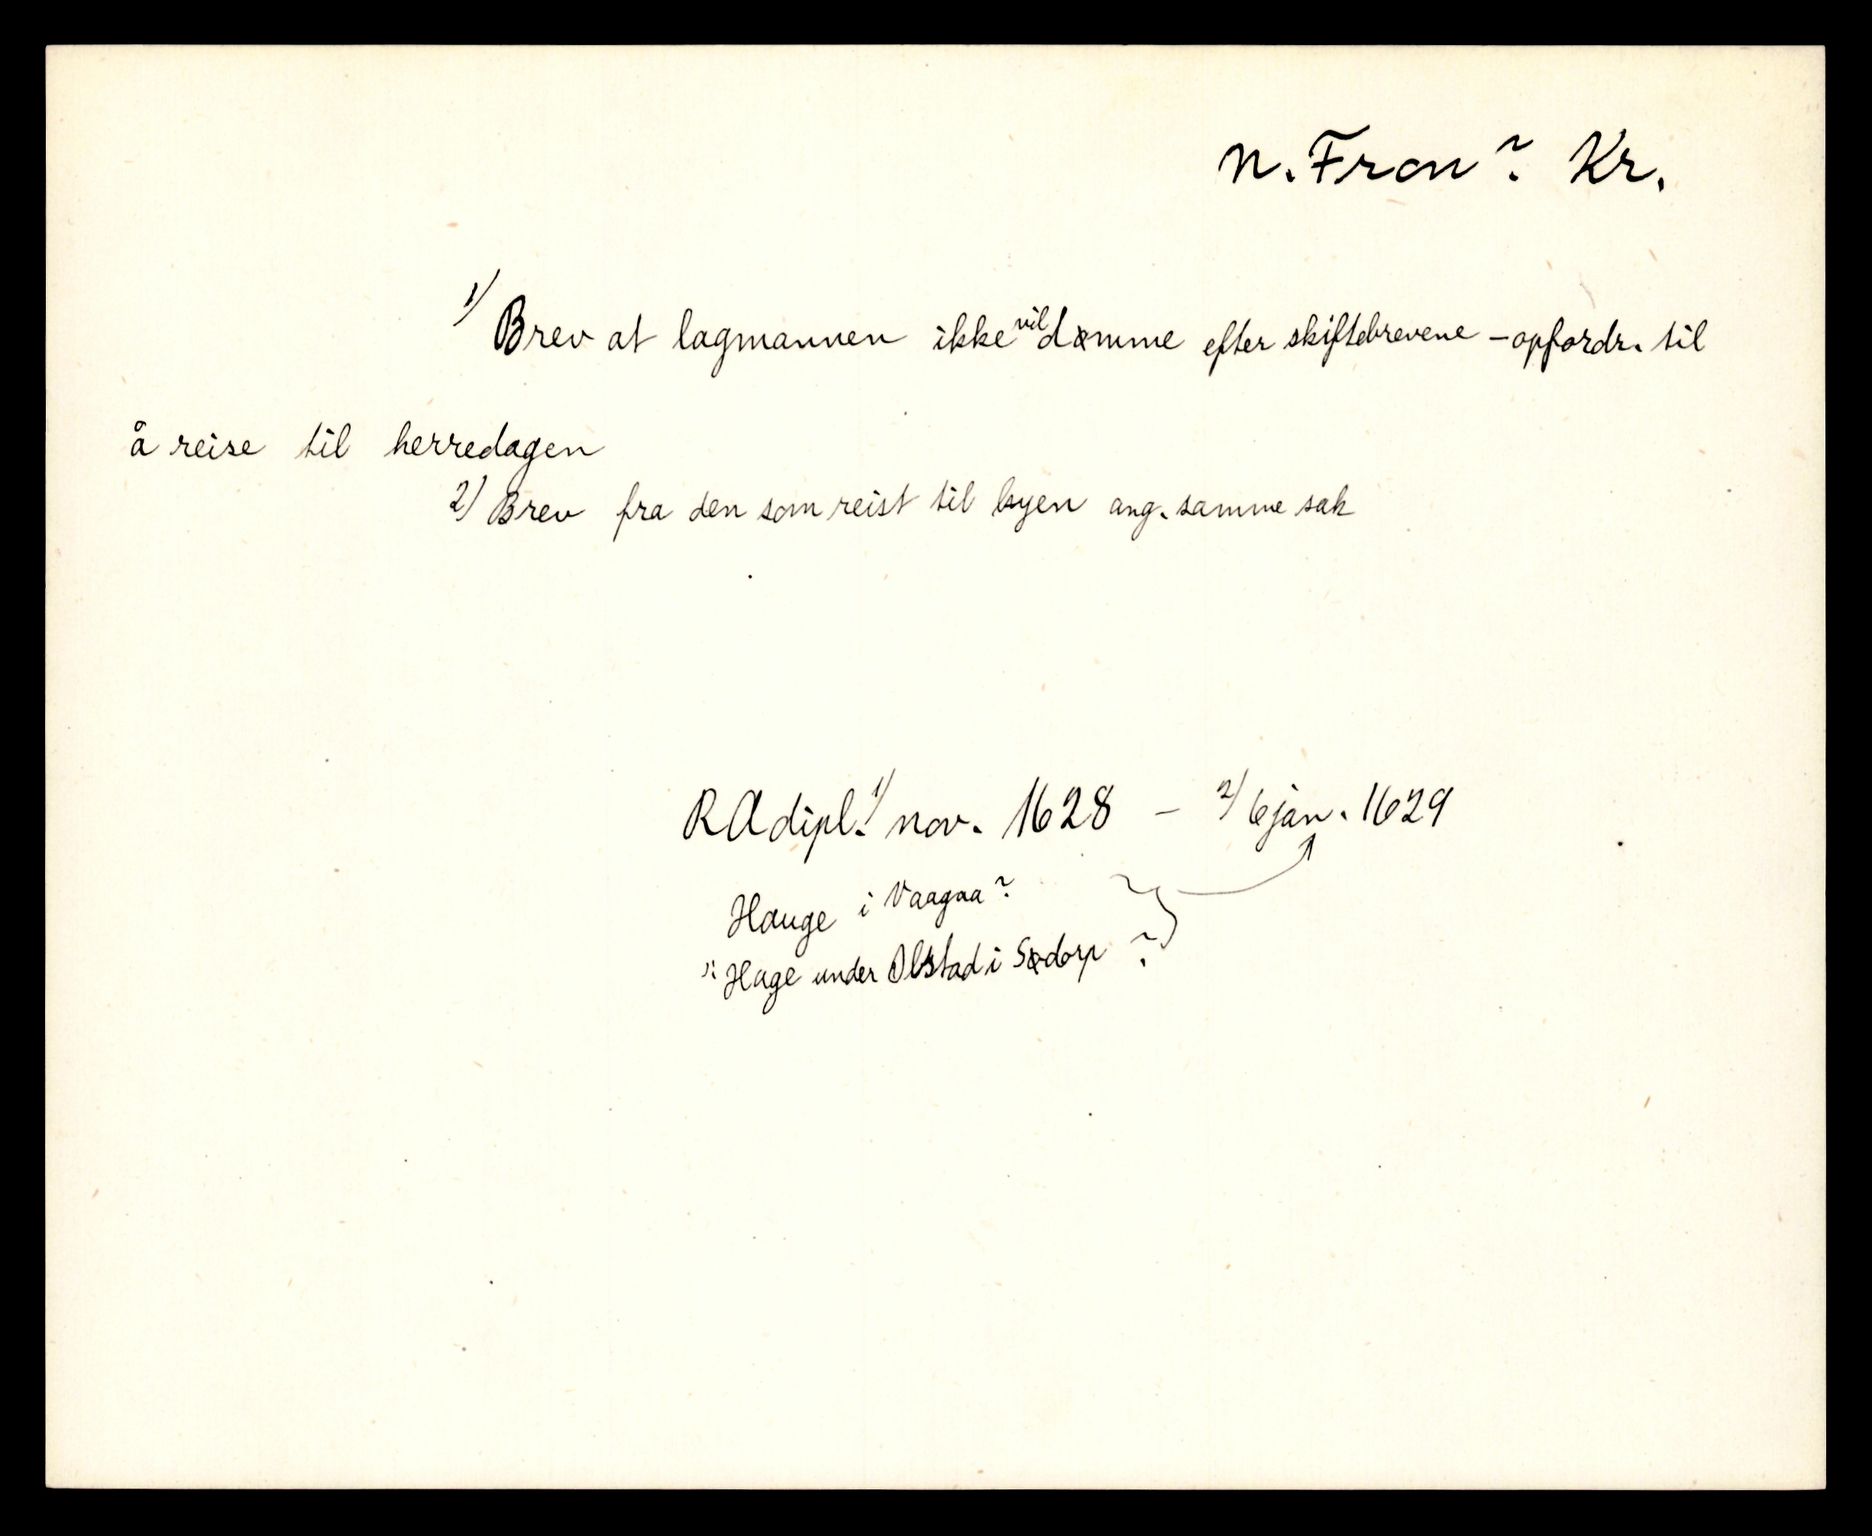 N. Fron? Kr.
1) Brev at lagmannen ikke vil dømme efter skiftebrevene – opfordr. til
å reise til herredagen
2) Brev fra den som reist til byen ang. samme sak
RA dipl. 1) nov. 1628 – 2) 6 jan. 1629
Hauge i Vaagaa?
": Hage under Olstad i Sødorp ?